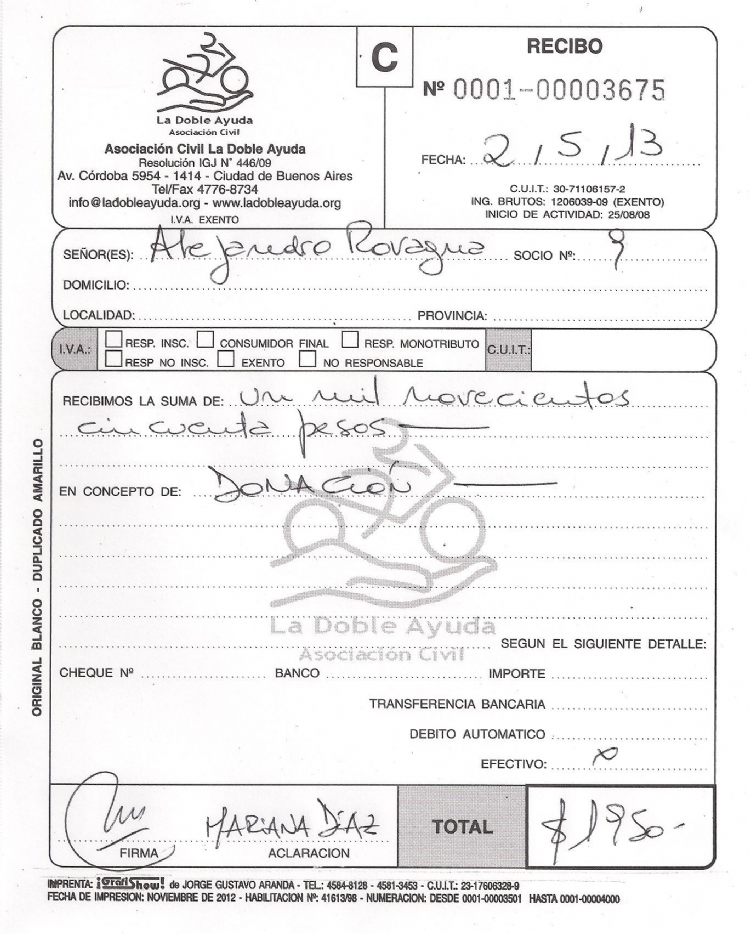 La Doble Ayuda
Asociación Civil
Asociación Civil La Doble Ayuda
Resolución IGJ N° 446/09
Av. Córdoba 5954 - 1414 - Ciudad de Buenos Aires
Tel/Fax 4776-8734
info@ladobleayuda.org - www.ladobleayuda.org
I.V.A. EXENTO
C
RECIBO
Nº 0001-00003675
FECHA: 2, 5, 13
C.U.I.T.: 30-71106157-2
ING. BRUTOS: 1206039-09 (EXENTO)
INICIO DE ACTIVIDAD: 25/08/08
SEÑOR(ES): Alejandro Rovagna SOCIO Nº: 9
DOMICILIO:
LOCALIDAD: PROVINCIA:
I.V.A.: RESP. INSC. CONSUMIDOR FINAL RESP. MONOTRIBUTO C.U.I.T.:
RESP NO INSC. EXENTO NO RESPONSABLE
RECIBIMOS LA SUMA DE: un mil novecientos
cincuenta pesos
EN CONCEPTO DE: DONACIÓN
La Doble Ayuda
Asociación Civil
SEGUN EL SIGUIENTE DETALLE:
CHEQUE Nº BANCO IMPORTE
TRANSFERENCIA BANCARIA
DEBITO AUTOMATICO
EFECTIVO: x
MARIANA DÍAZ
FIRMA ACLARACION
TOTAL $1950-
ORIGINAL BLANCO - DUPLICADO AMARILLO
IMPRENTA: ¡GrafiShow! de JORGE GUSTAVO ARANDA - TEL.: 4584-8128 - 4581-3453 - C.U.I.T.: 23-17606328-9
FECHA DE IMPRESION: NOVIEMBRE DE 2012 - HABILITACION Nº: 41613/98 - NUMERACION: DESDE 0001-00003501 HASTA 0001-00004000